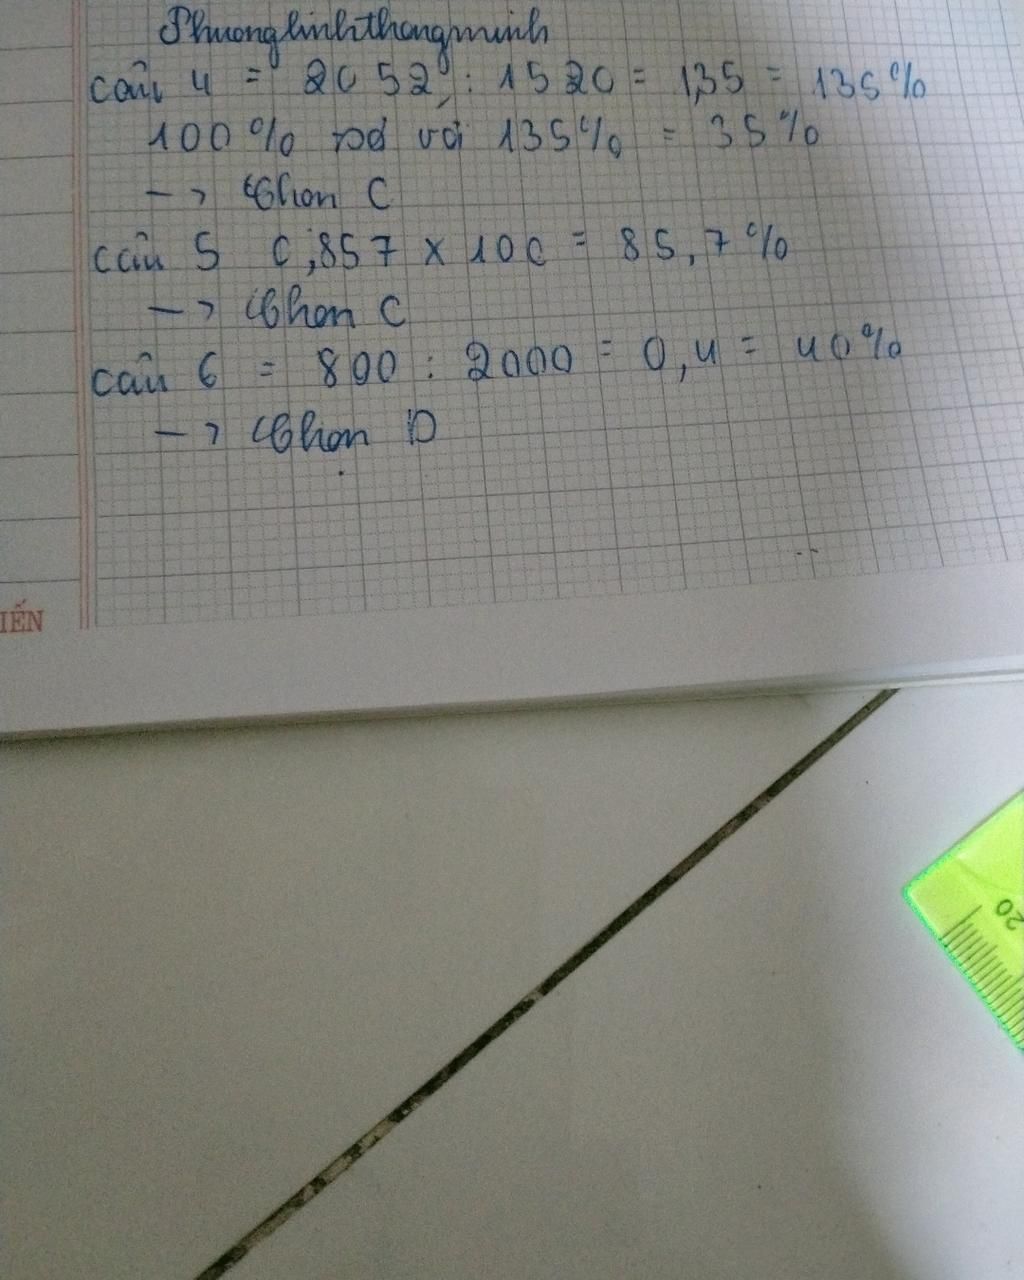 Phuonglinhthongminh
câu 4 = 2052 : 1520 = 1,35 = 135%
100% so với 135% = 35%
-> Chọn C
câu 5 0,857 x 100 = 85,7%
-> Chọn C
câu 6 = 800 : 2000 = 0,4 = 40%
-> Chọn D
IẾN
20